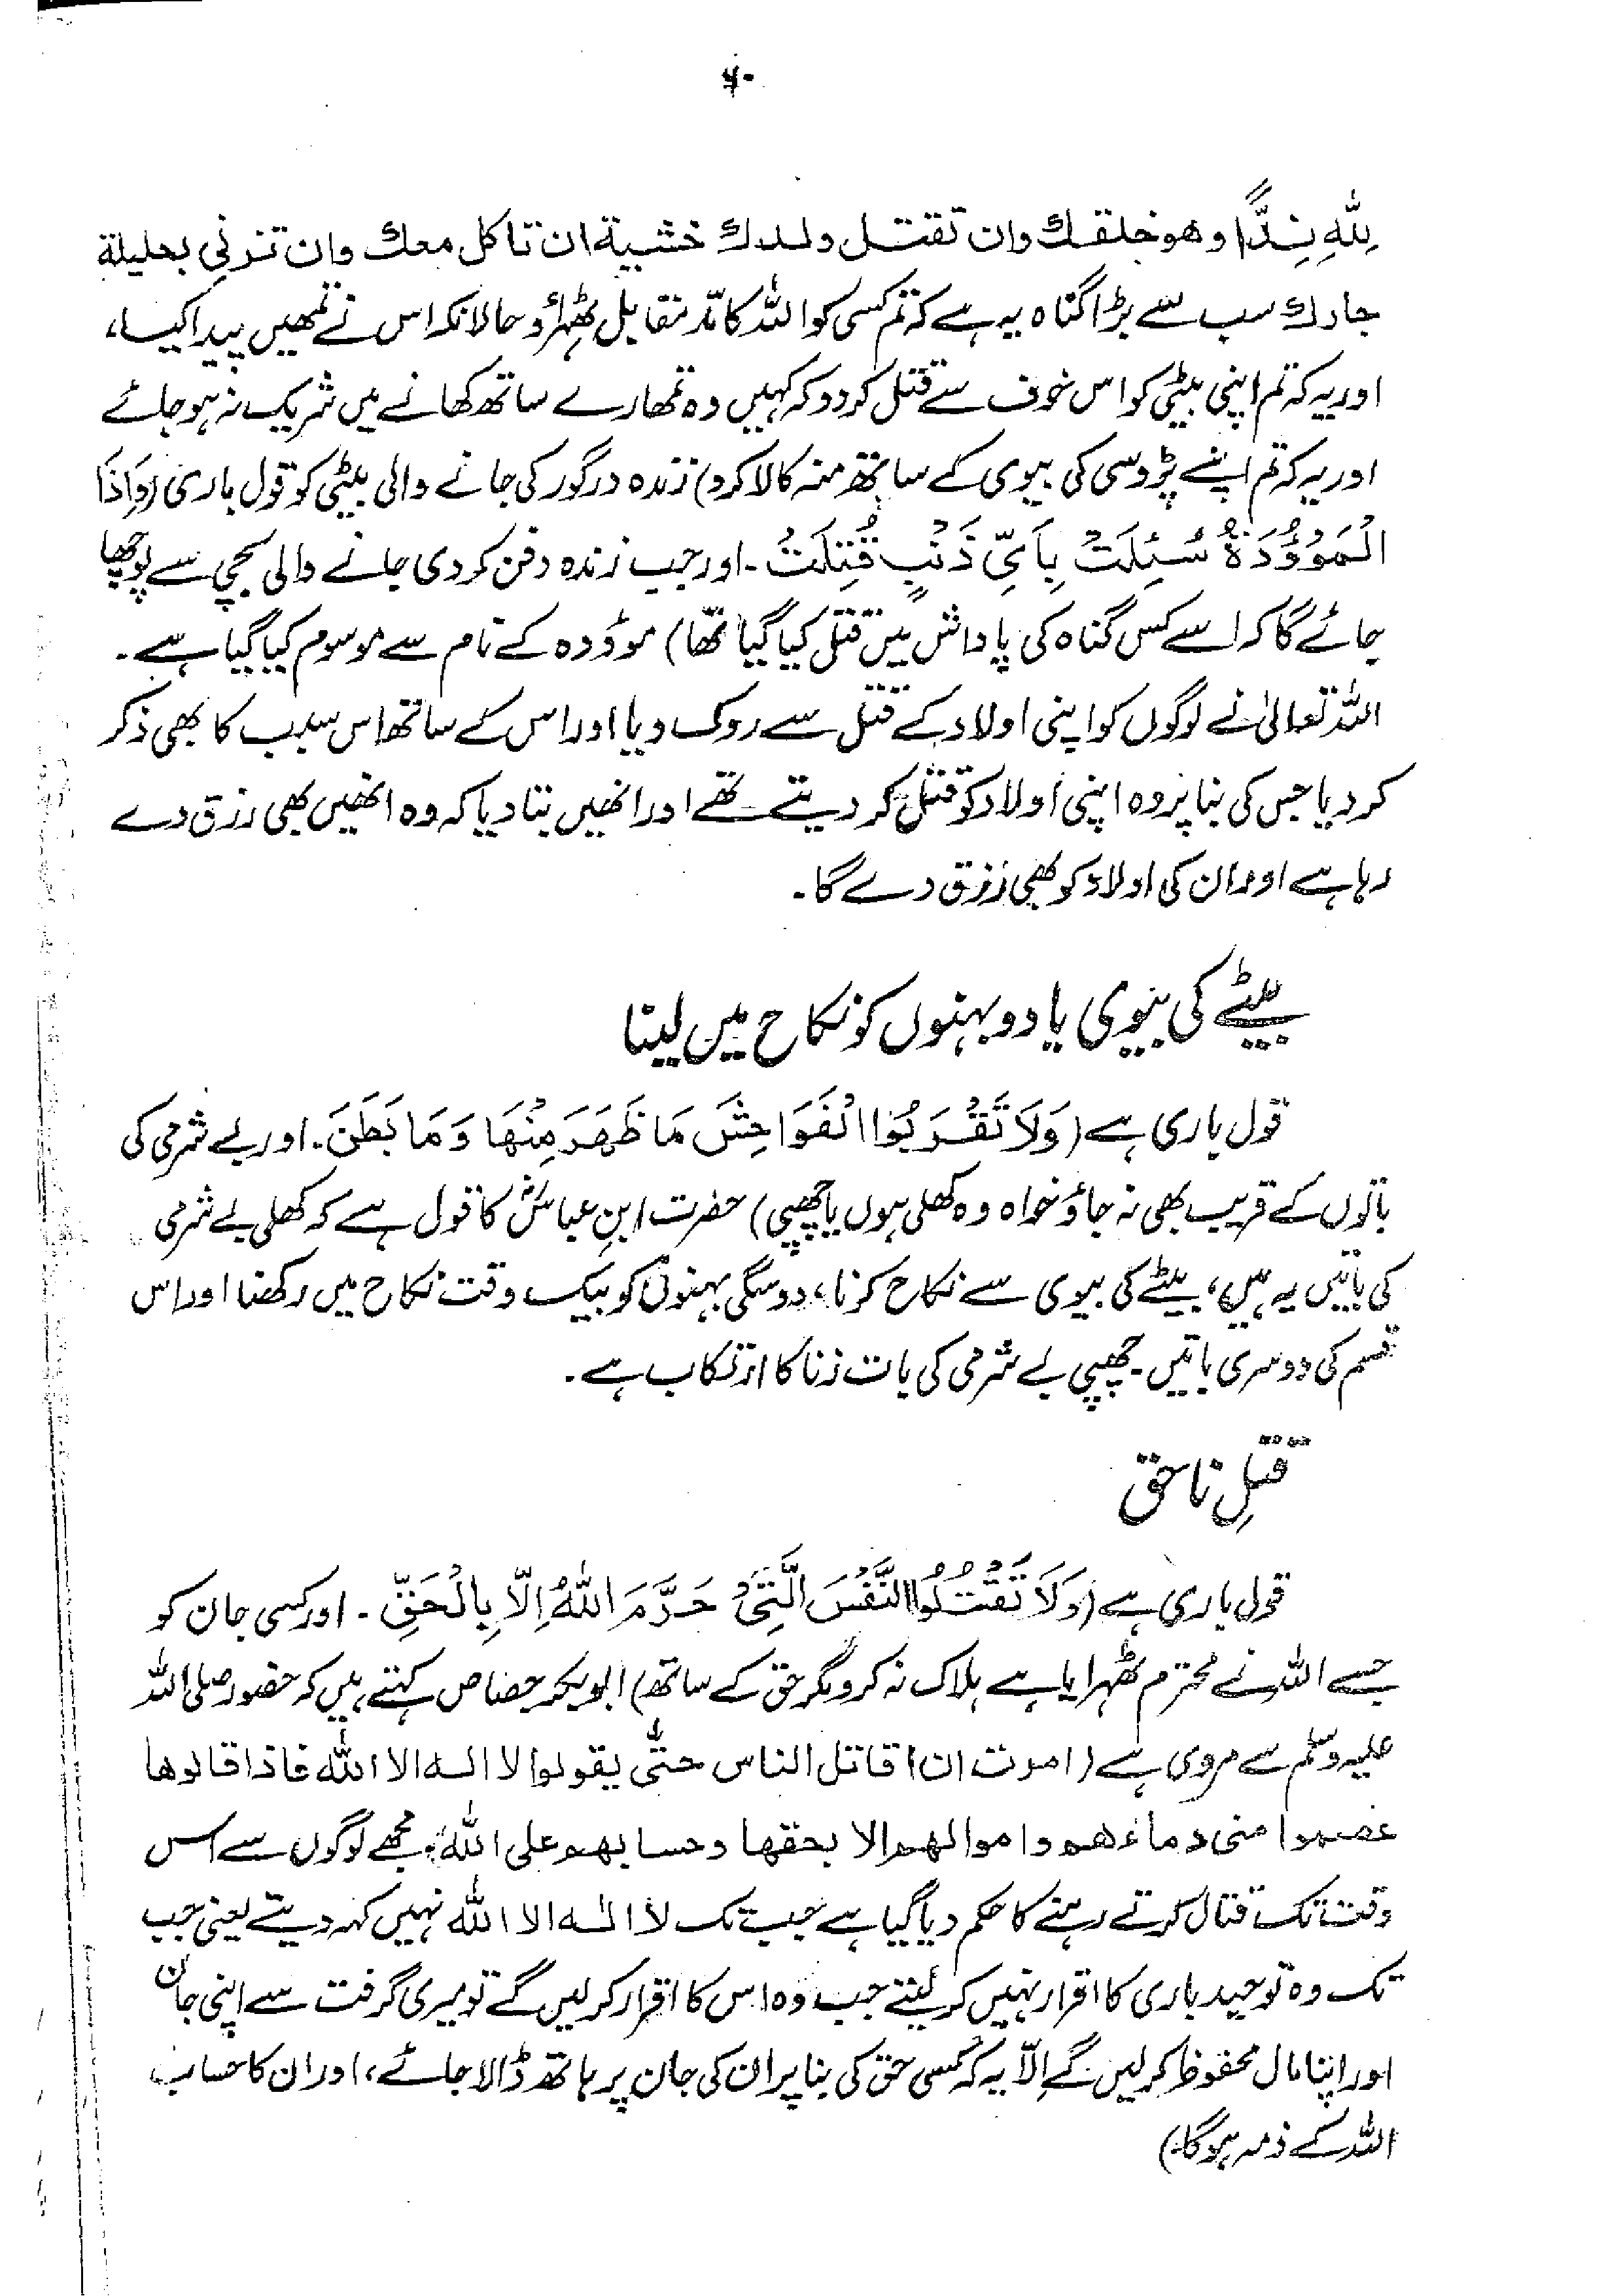 ۶۰
لِلّٰهِ نِدًّا وهو خلقك وان تقتل ولدك خشية ان تاكل معك وان تزني بحليلة
جارك سب سے بڑا گناہ یہ ہے کہ تم کسی کو اللہ کا مدّ مقابل ٹھہراؤ حالانکہ اس نے تمھیں پیدا کیا،
اور یہ کہ تم اپنی بیٹی کو اس خوف سے قتل کر دو کہ کہیں وہ تمھارے ساتھ کھانے میں شریک نہ ہو جائے
اور یہ کہ تم اپنے پڑوسی کی بیوی کے ساتھ منہ کالا کرو) زندہ درگور کی جانے والی بیٹی کو قول باری (وَاِذَا
الْمَوْؤُدَةُ سُئِلَتْ بِاَىِّ ذَنْبٍ قُتِلَتْ۔ اور جب زندہ دفن کر دی جانے والی بچی سے پوچھا
جائے گا کہ اسے کس گناہ کی پاداش میں قتل کیا گیا تھا) موؤدہ کے نام سے موسوم کیا گیا ہے۔
اللہ تعالیٰ نے لوگوں کو اپنی اولاد کے قتل سے روک دیا اور اس کے ساتھ اس سبب کا بھی ذکر
کر دیا جس کی بنا پر وہ اپنی اولاد کو قتل کر دیتے تھے اور انھیں بتا دیا کہ وہ انھیں بھی رزق دے
رہا ہے اور ان کی اولاد کو بھی رزق دے گا۔
بیٹے کی بیوی یا دو بہنوں کو نکاح میں لینا
قول باری ہے (وَلَا تَقْرَبُوا الْفَوَاحِشَ مَا ظَهَرَ مِنْهَا وَمَا بَطَنَ۔ اور بے شرمی کی
باتوں کے قریب بھی نہ جاؤ خواہ وہ کھلی ہوں یا چھپی) حضرت ابنِ عباسؓ کا قول ہے کہ کھلی بے شرمی
کی باتیں یہ ہیں، بیٹے کی بیوی سے نکاح کرنا، دو سگی بہنوں کو بیک وقت نکاح میں رکھنا اور اس
قسم کی دوسری باتیں۔ چھپی بے شرمی کی بات زنا کا ارتکاب ہے۔
قتلِ ناحق
قول باری ہے (وَلَا تَقْتُلُوا النَّفْسَ الَّتِىْ حَرَّمَ اللّٰهُ اِلَّا بِالْحَقِّ۔ اور کسی جان کو
جسے اللہ نے محترم ٹھہرایا ہے ہلاک نہ کرو مگر حق کے ساتھ) ابوبکر جصاص کہتے ہیں کہ حضور صلی اللہ
علیہ وسلم سے مروی ہے (امرت ان اقاتل الناس حتّٰی یقولوا لا الٰه الا اللّٰه فاذا قالوها
عصموا منی دماءهم واموالهم الا بحقها وحسابهم علی اللّٰه، مجھے لوگوں سے اس
وقت تک قتال کرتے رہنے کا حکم دیا گیا ہے جب تک لا الٰہ الا اللہ نہیں کہہ دیتے یعنی جب
تک وہ توحید باری کا اقرار نہیں کر لیتے جب وہ اس کا اقرار کر لیں گے تو میری گرفت سے اپنی جان
اور اپنا مال محفوظ کر لیں گے اِلّا یہ کہ کسی حق کی بنا پر ان کی جان پر ہاتھ ڈالا جائے، اور ان کا حساب
اللہ کے ذمہ ہوگا۔)